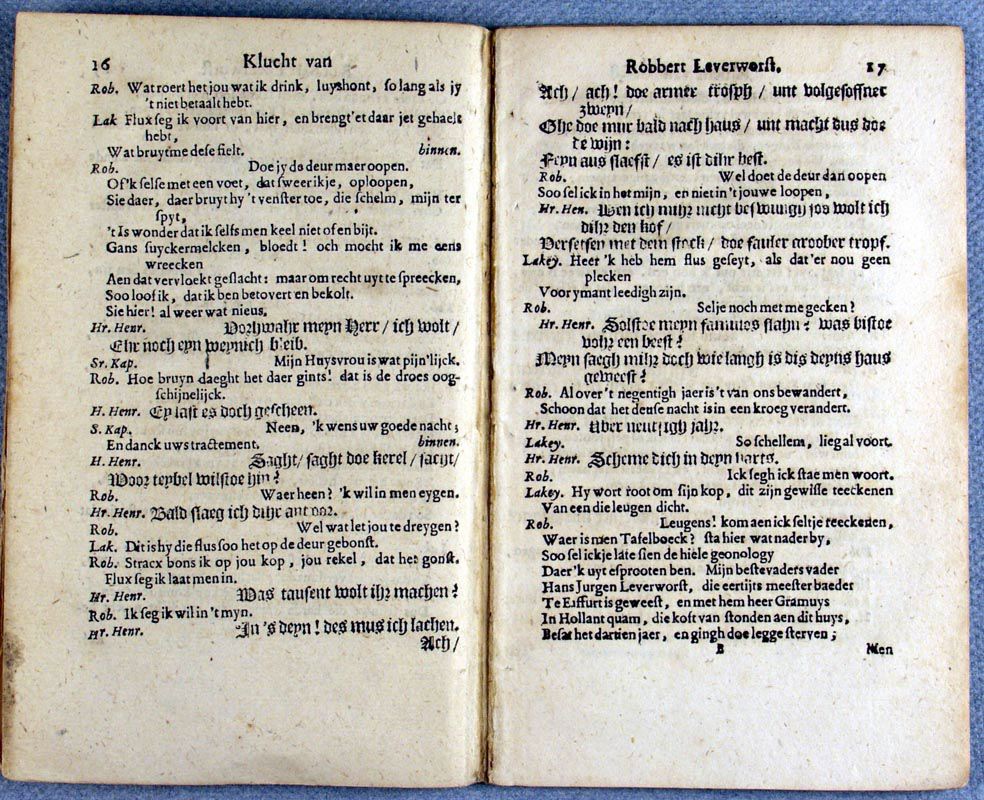 16 Klucht van
Rob. Wat roert het jou wat ik drink, luyshont, so lang als jy
't niet betaalt hebt.
Lak Flux seg ik voort van hier, en brengt'et daar jet gehaelt
hebt,
Wat bruyt me dese fielt. binnen.
Rob. Doe jy de deur maer oopen.
Of 'k selse met een voet, dat sweer ik je, oploopen,
Sie daer, daer bruyt hy 't venster toe, die schelm, mijn ter
spyt,
't Is wonder dat ik selfs men keel niet of en bijt.
Gans suyckermelcken, bloedt! och mocht ik me eens
wreecken
Aen dat vervloekt geslacht: maar om recht uyt te spreecken,
Soo loof ik, dat ik ben betovert en bekolt.
Sie hier! al weer wat nieus.
Hr. Henr. Vorhwahr meyn Herr / ich wolt /
Ehr noch eyn weynich bleib.
Sr. Kap. Mijn Huysvrou is wat pijn'lijck.
Rob. Hoe bruyn daeght het daer gints! dat is de droes oog-
schijnelijck.
H. Henr. Ey last es doch gescheen.
S. Kap. Neen, 'k wens uw goede nacht,
En danck uws tractement. binnen.
H. Henr. Saght / saght doe kerel / sacht /
Woor teybel wilstoe hin?
Rob. Waer heen? 'k wil in men eygen.
Hr. Henr. Bald slaeg ich dihr
Rob. Wel wat let jou te dreygen?
Lak. Dit is hy die flus soo het op de deur gebonst.
Rob. Stracx bons ik op jou kop, jou rekel, dat het gonst.
Flux seg ik laat men in.
Hr. Henr. Was tausent wolt ihr machen?
Rob. Ik seg ik wil in 't myn.
Hr. Henr. In 's deyn! des mus ich lachen.
Ach /
Robbert Leverworst. 17
Ach / ach! doe armer trosph / unt volgesoffner
zweyn /
Ghe doe mur bald nach haus / unt macht dus doe
te wijn:
Feyn aus slaefst / es ist dihr best.
Rob. Wel doet de deur dan oopen
Soo sel ick in het mijn, en niet in 't jouwe loopen,
Hr. Hen. Wen ich mihr nicht beswungh jos wolt ich
dihr den kof /
Versetsen met dem stock / doe fauler groober tropf.
Lakey. Heer 'k heb hem flus geseyt, als dat'er nou geen
plecken
Voor ymant leedigh zijn.
Rob. Sel je noch met me gecken?
Hr. Henr. Solstoe meyn famutos slahn? was bistoe
vohr een beest?
Meyn saegh mihr doch wie langh is dis deyns haus
geweest?
Rob. Al over 't negentigh jaer is 't van ons bewandert,
Schoon dat het dense nacht is in een kroeg verandert.
Hr. Henr. Uber neutsigh jahr.
Lakey. So schellem, lieg al voort.
Hr. Henr. Scheme dich in deyn harts.
Rob. Ick segh ick stae men woort.
Lakey. Hy wort root om sijn kop, dit zijn gewisse teeckenen
Van een die leugen dicht.
Rob. Leugens! kom aen ick sel tje reeckenen,
Waer is men Tafelboeck? sta hier wat nader by,
Soo sel ick je late sien de hiele geonology
Daer 'k uyt esprooten ben. Mijn bestevaders vader
Hans Jurgen Leverworst, die eertijts meester baeder
Te Eiffurt is geweest, en met hem heer Gramuys
In Hollant quam, die koft van stonden aen dit huys,
Besat het dartien jaer, en gingh doe legge sterven;
B Men